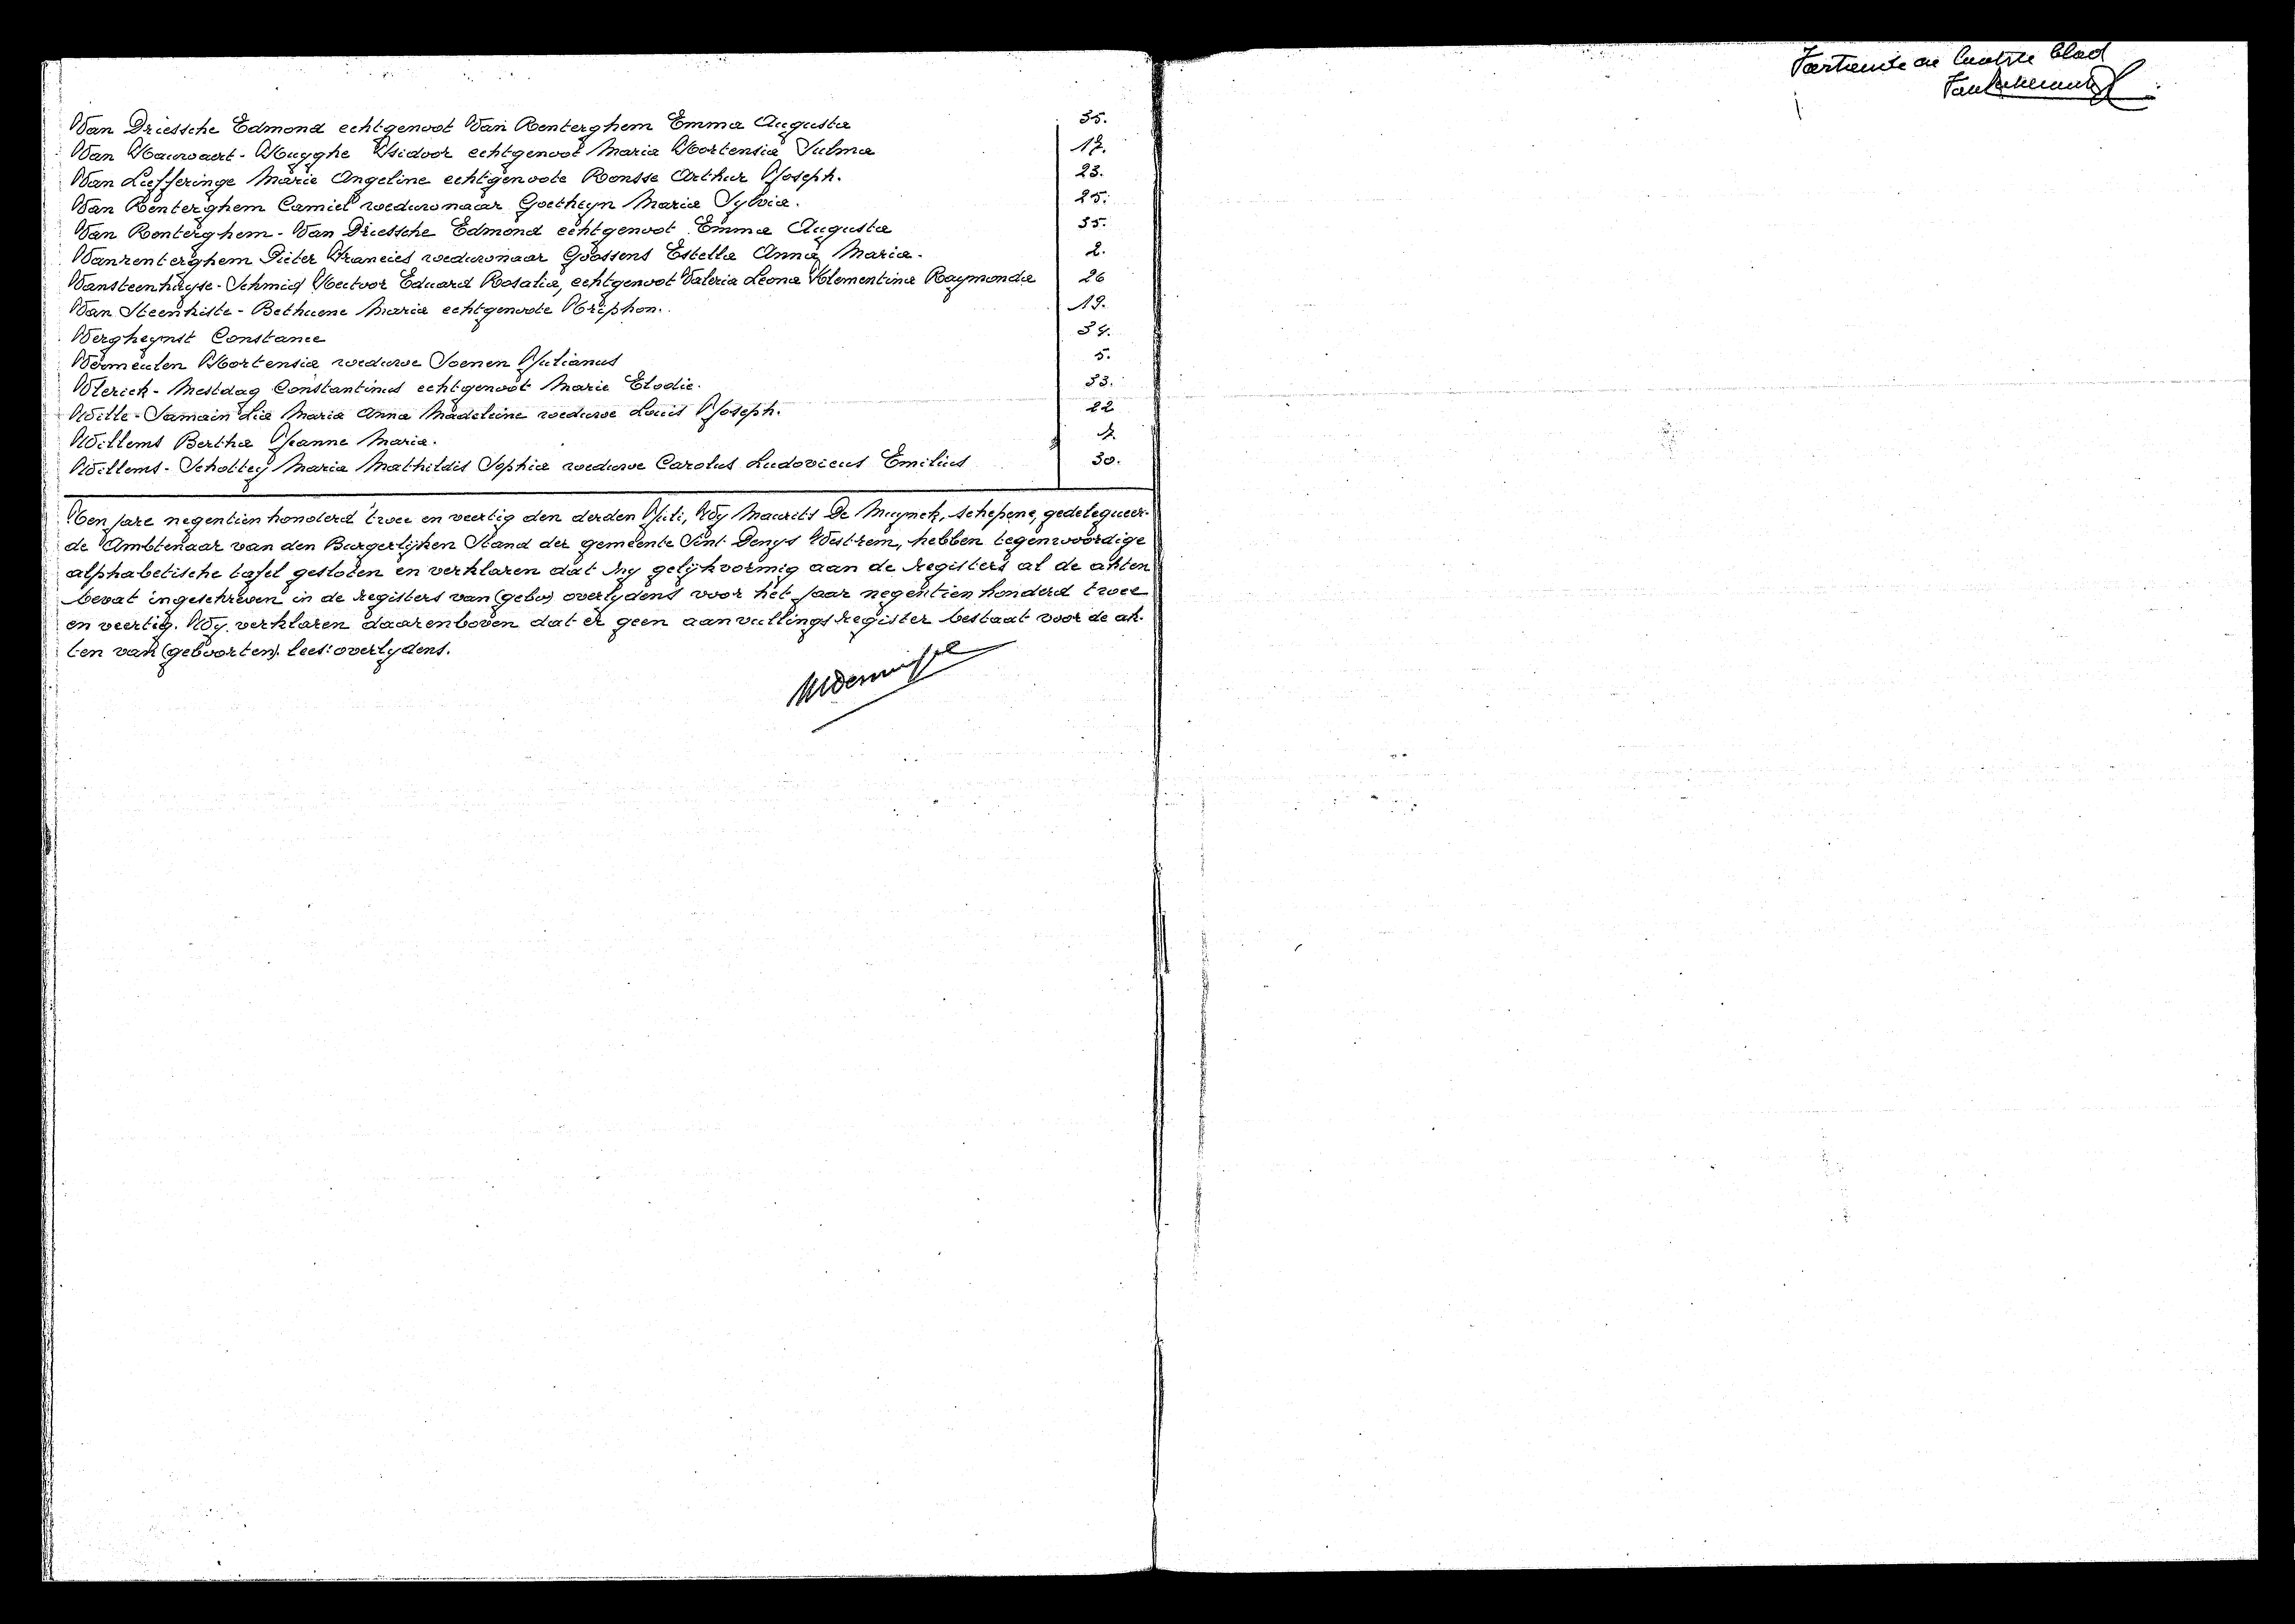 Van Driessche Edmond echtgenoot Van Renterghem Emma Augusta 35.
Van Hauwaert - Huyghe Isidoor echtgenoot Maria Hortensia Sulma 17.
Van Liefferinge Marie Angeline echtgenoote Ronsse Arthur Joseph. 23.
Van Renterghem Camiel weduwnaar Goetheyn Maria Sylvia. 25.
Van Renterghem - Van Driessche Edmond echtgenoot Emma Augusta 35.
Vanrenterghem Pieter Francies weduwnaar Goossens Estella Anna Maria. 2.
Vansteenhuyse - Schmid Hector Eduard Rosalia, echtgenoot Valeria Leona Klementina Raymonda 26
Van Steenkiste - Bethuene Maria echtgenoote Triphon. 19.
Vergheynst Constance 34.
Vermeulen Hortensia weduwe Soenen Julianus 5.
Vlerick - Mestdag Constantinus echtgenoot Marie Elodie. 33.
Wille - Samain Lia Maria Anna Madeleine weduwe Louis Joseph. 22
Willems Bertha Jeanne Maria.
Willems - Schottey Maria Mathildis Sophia weduwe Carolus Ludovicus Emilius 30.
Ten jare negentien honderd twee en veertig den derden Juli, Wy Maurits De Muynck, schepene, gedelegueer-
de Ambtenaar van den Burgerlijken Stand der gemeente Sint Denys Westrem, hebben tegenwoordige
alphabetische tafel gesloten en verklaren dat hy gelijkvormig aan de registers al de akten
bevat ingeschreven in de registers van (gebo) overlydens voor het jaar negentien honderd twee
en veertig. Wy verklaren daarenboven dat er geen aanvullingsregister bestaat voor de ak-
ten van (geboorten). lees: overlydens.
blad